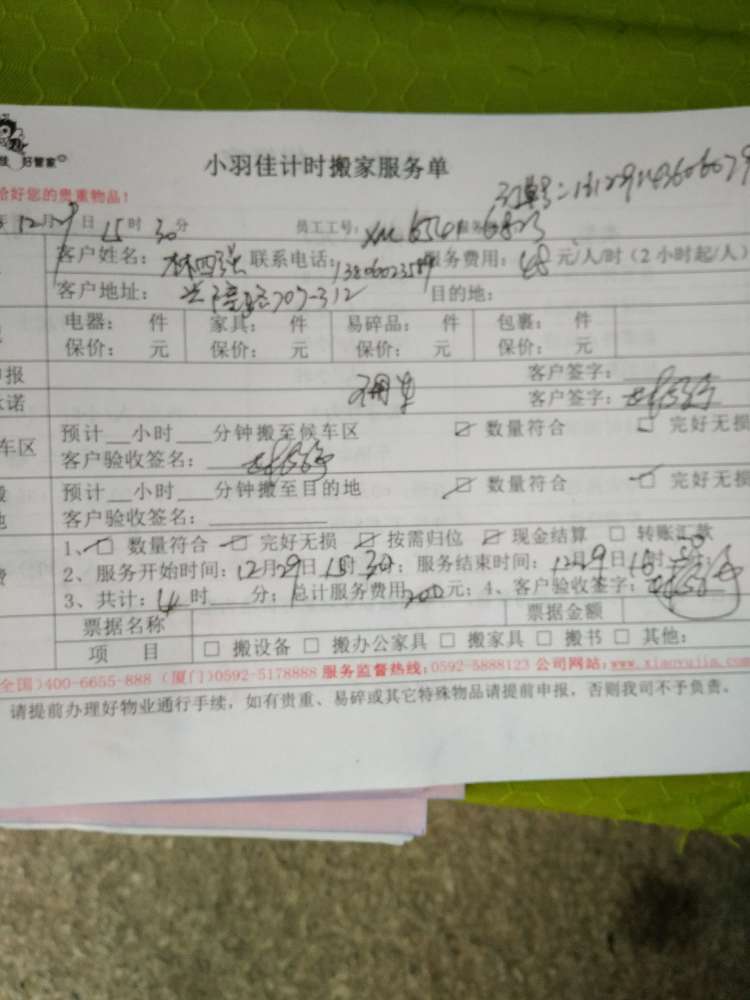 好管家
小羽佳计时搬家服务单
给好您的贵重物品!
12月29日 15时30分 员工工号: 6823
客户姓名:林四强 联系电话: 服务费用:48元/人/时(2小时起/人)
客户地址: 707-312 目的地:
电器: 件 家具: 件 易碎品: 件 包裹: 件
保价: 元 保价: 元 保价: 元 保价: 元
申报 不用车 客户签字:
承诺 客户签字:
车区 预计__小时___分钟搬至候车区 ☑ 数量符合 ☐ 完好无损
客户验收签名:
预计__小时___分钟搬至目的地 ☑ 数量符合 ☑ 完好无损
地 客户验收签名:
1、☑ 数量符合 ☑ 完好无损 ☑ 按需归位 ☑ 现金结算 ☐ 转账汇款
费 2、服务开始时间:12月29日15时30分;服务结束时间:12月29日
3、共计:4时___分;总计服务费用200元;4、客户验收签字:
票据名称 票据金额
项 目 ☐ 搬设备 ☐ 搬办公家具 ☐ 搬家具 ☐ 搬书 ☐ 其他:
全国)400-6655-888 (厦门)0592-5178888 服务监督热线:0592-5888123 公司网站:www.xiaoyujia.com
请提前办理好物业通行手续,如有贵重、易碎或其它特殊物品请提前申报,否则我司不予负责。